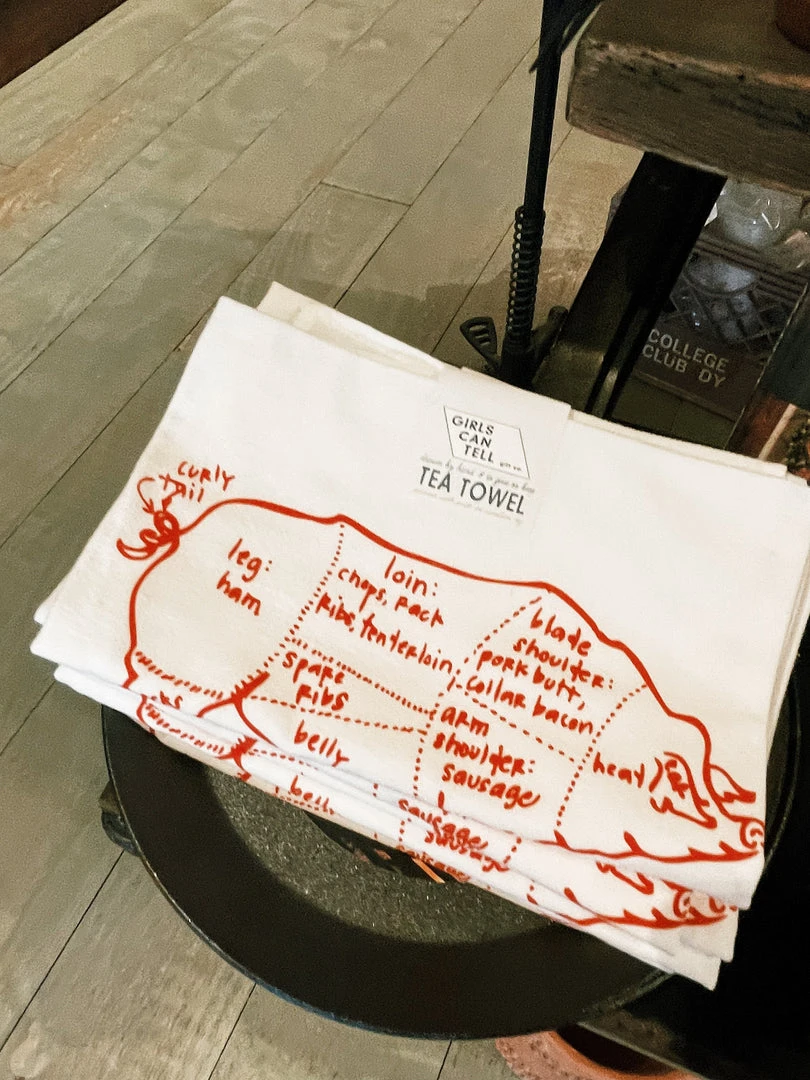 COLLEGE
CLUB DY
GIRLS
CAN
TELL
TEA TOWEL
curly
tail
leg:
ham
loin:
chops, rack
ribs, tenterloin,
spare
ribs
belly
blade
shoulder:
pork butt,
collar bacon
arm
shoulder:
sausage
head
sausage
sausage